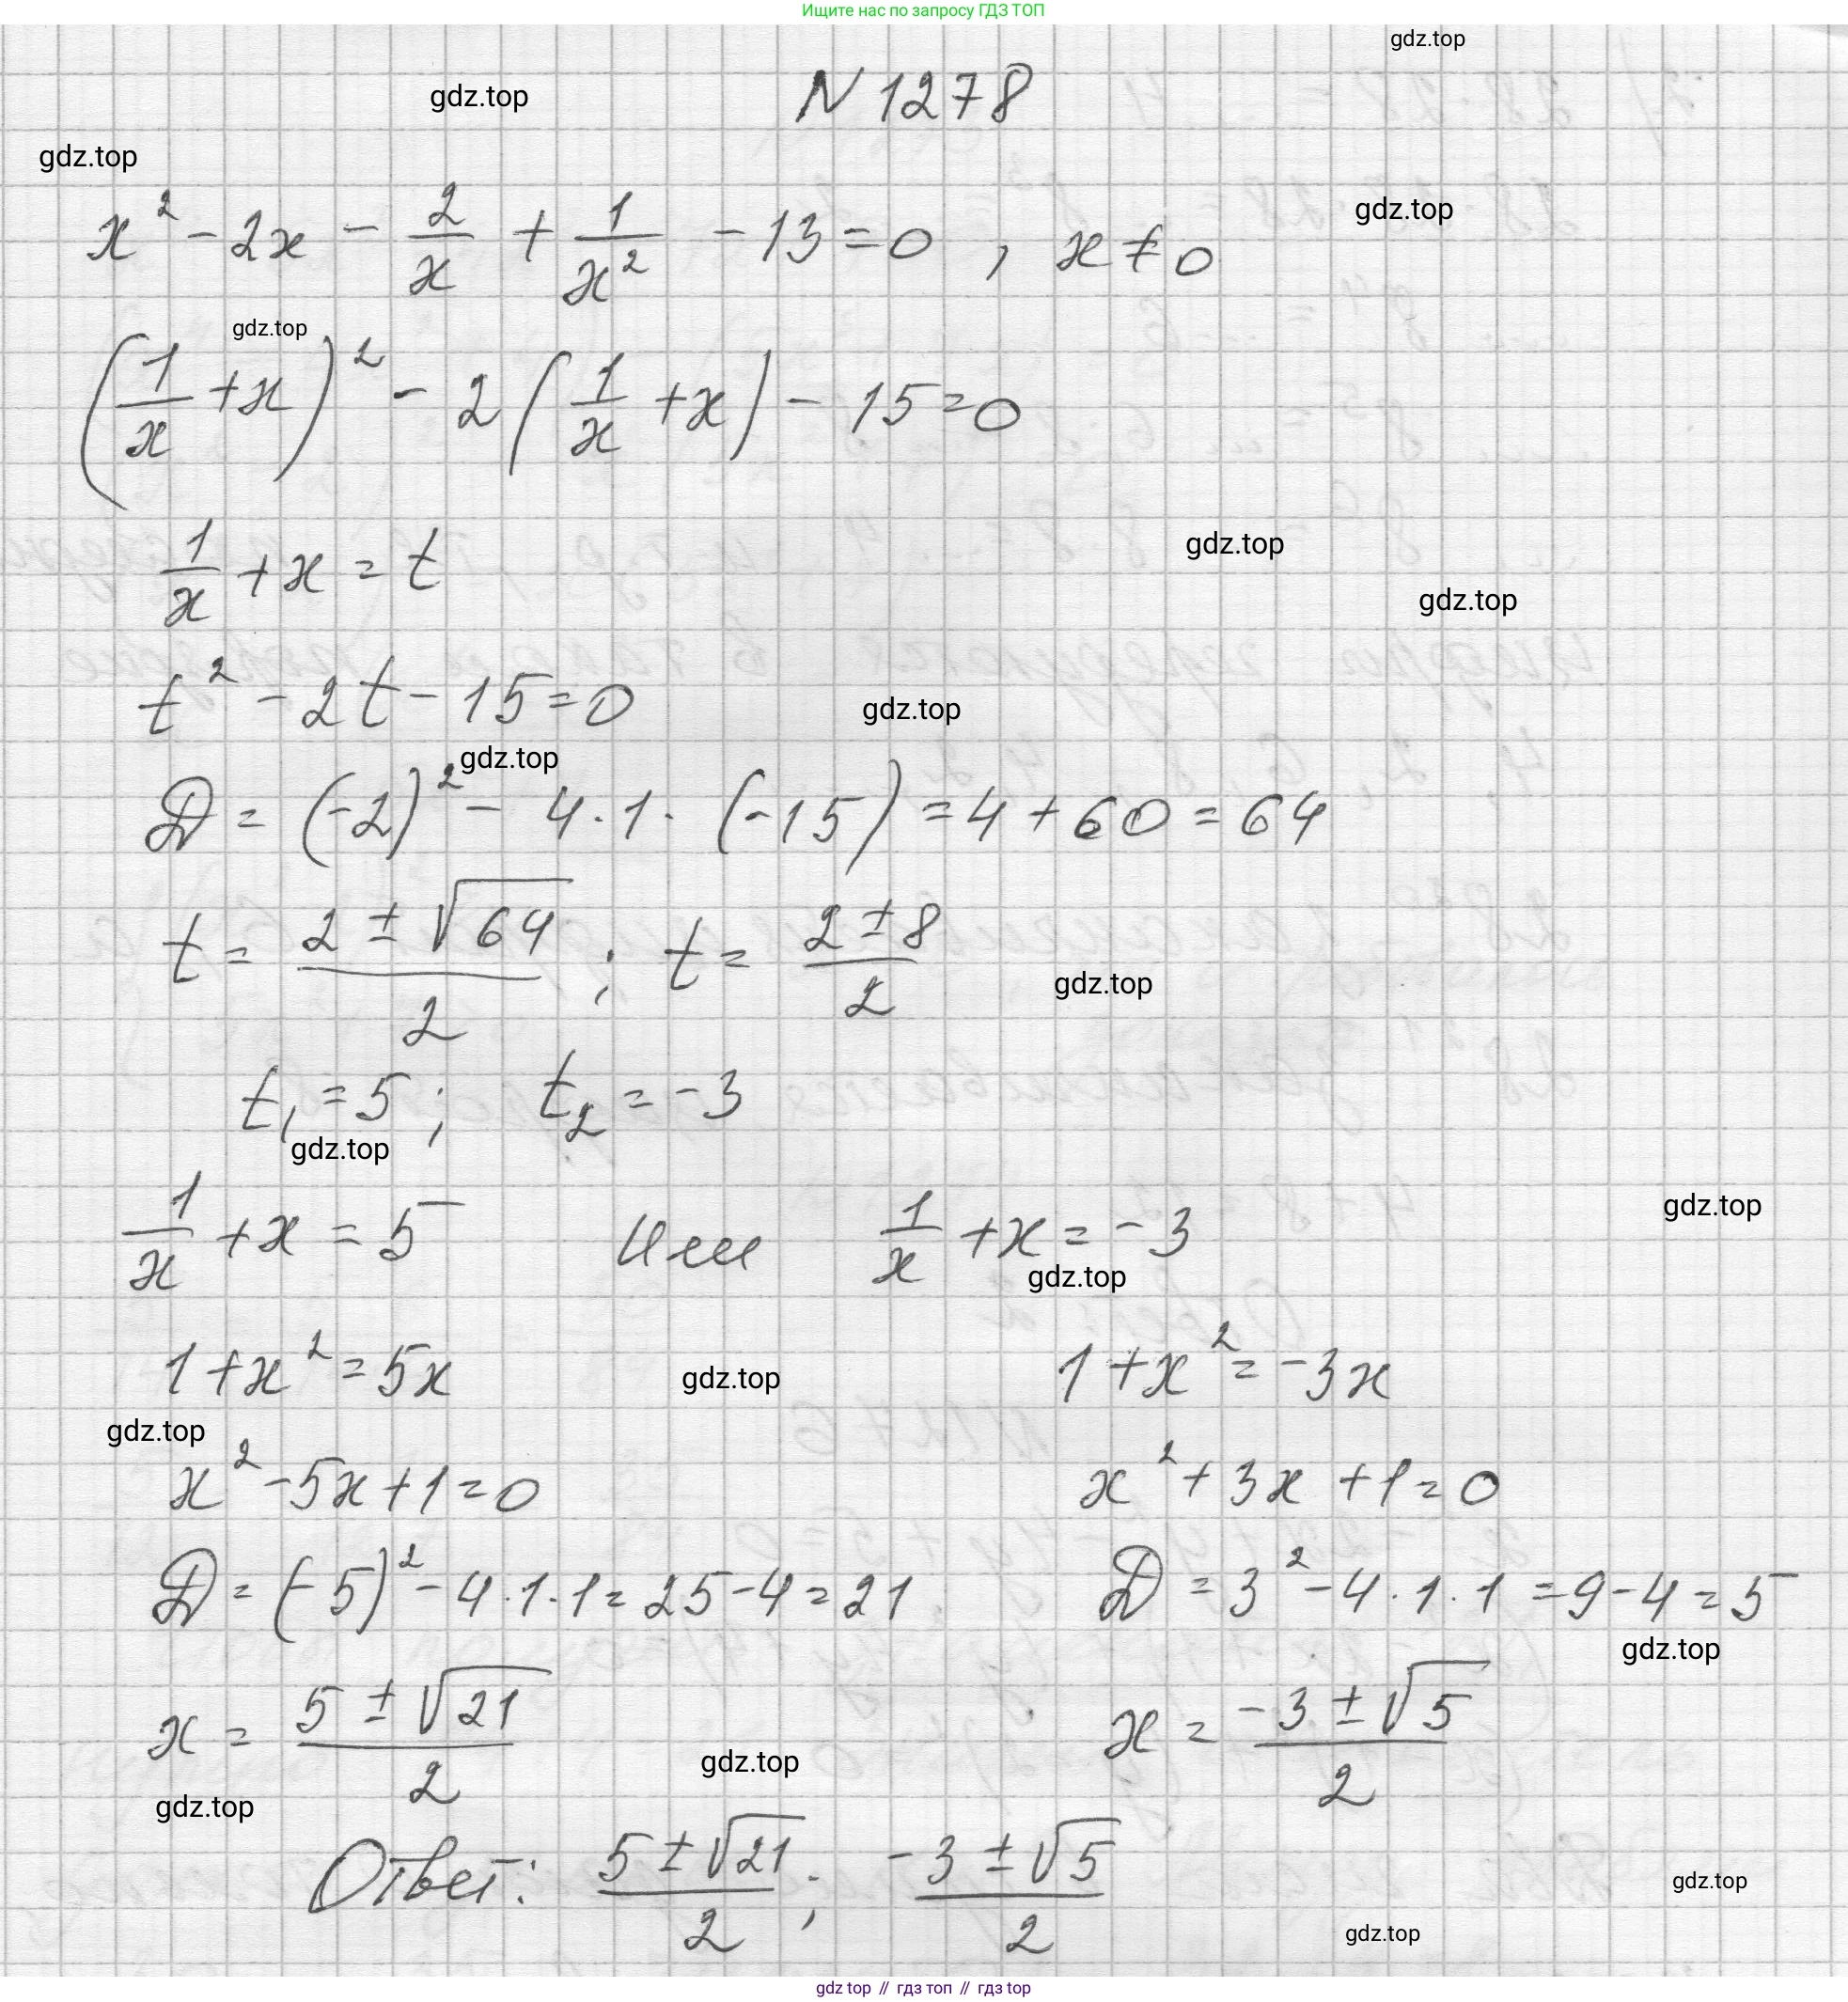 Ищите нас по запросу ГДЗ ТОП
gdz.top
gdz.top
N 1278
gdz.top
gdz.top
x² - 2x - 2/x + 1/x² - 13 = 0 , x ≠ 0
gdz.top
(1/x + x)² - 2(1/x + x) - 15 = 0
1/x + x = t
gdz.top
gdz.top
t² - 2t - 15 = 0
gdz.top
gdz.top
D = (-2)² - 4 · 1 · (-15) = 4 + 60 = 64
t = (2 ± √64)/2 ; t = (2 ± 8)/2
gdz.top
t₁ = 5 ; t₂ = -3
gdz.top
gdz.top
1/x + x = 5 или 1/x + x = -3
gdz.top
1 + x² = 5x 1 + x² = -3x
gdz.top
gdz.top
x² - 5x + 1 = 0 x² + 3x + 1 = 0
D = (-5)² - 4 · 1 · 1 = 25 - 4 = 21 D = 3² - 4 · 1 · 1 = 9 - 4 = 5
gdz.top
x = (5 ± √21)/2 x = (-3 ± √5)/2
gdz.top
gdz.top
Ответ: (5 ± √21)/2 ; (-3 ± √5)/2
gdz.top
gdz.top
gdz top // гдз топ // гдз top